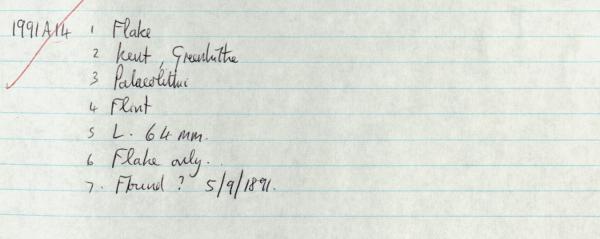 1991A14 1 Flake
2 Kent, Greenhithe
3 Palaeolithic
4 Flint
5 L. 64 mm.
6 Flake only.
7. Found ? 5/9/1891.